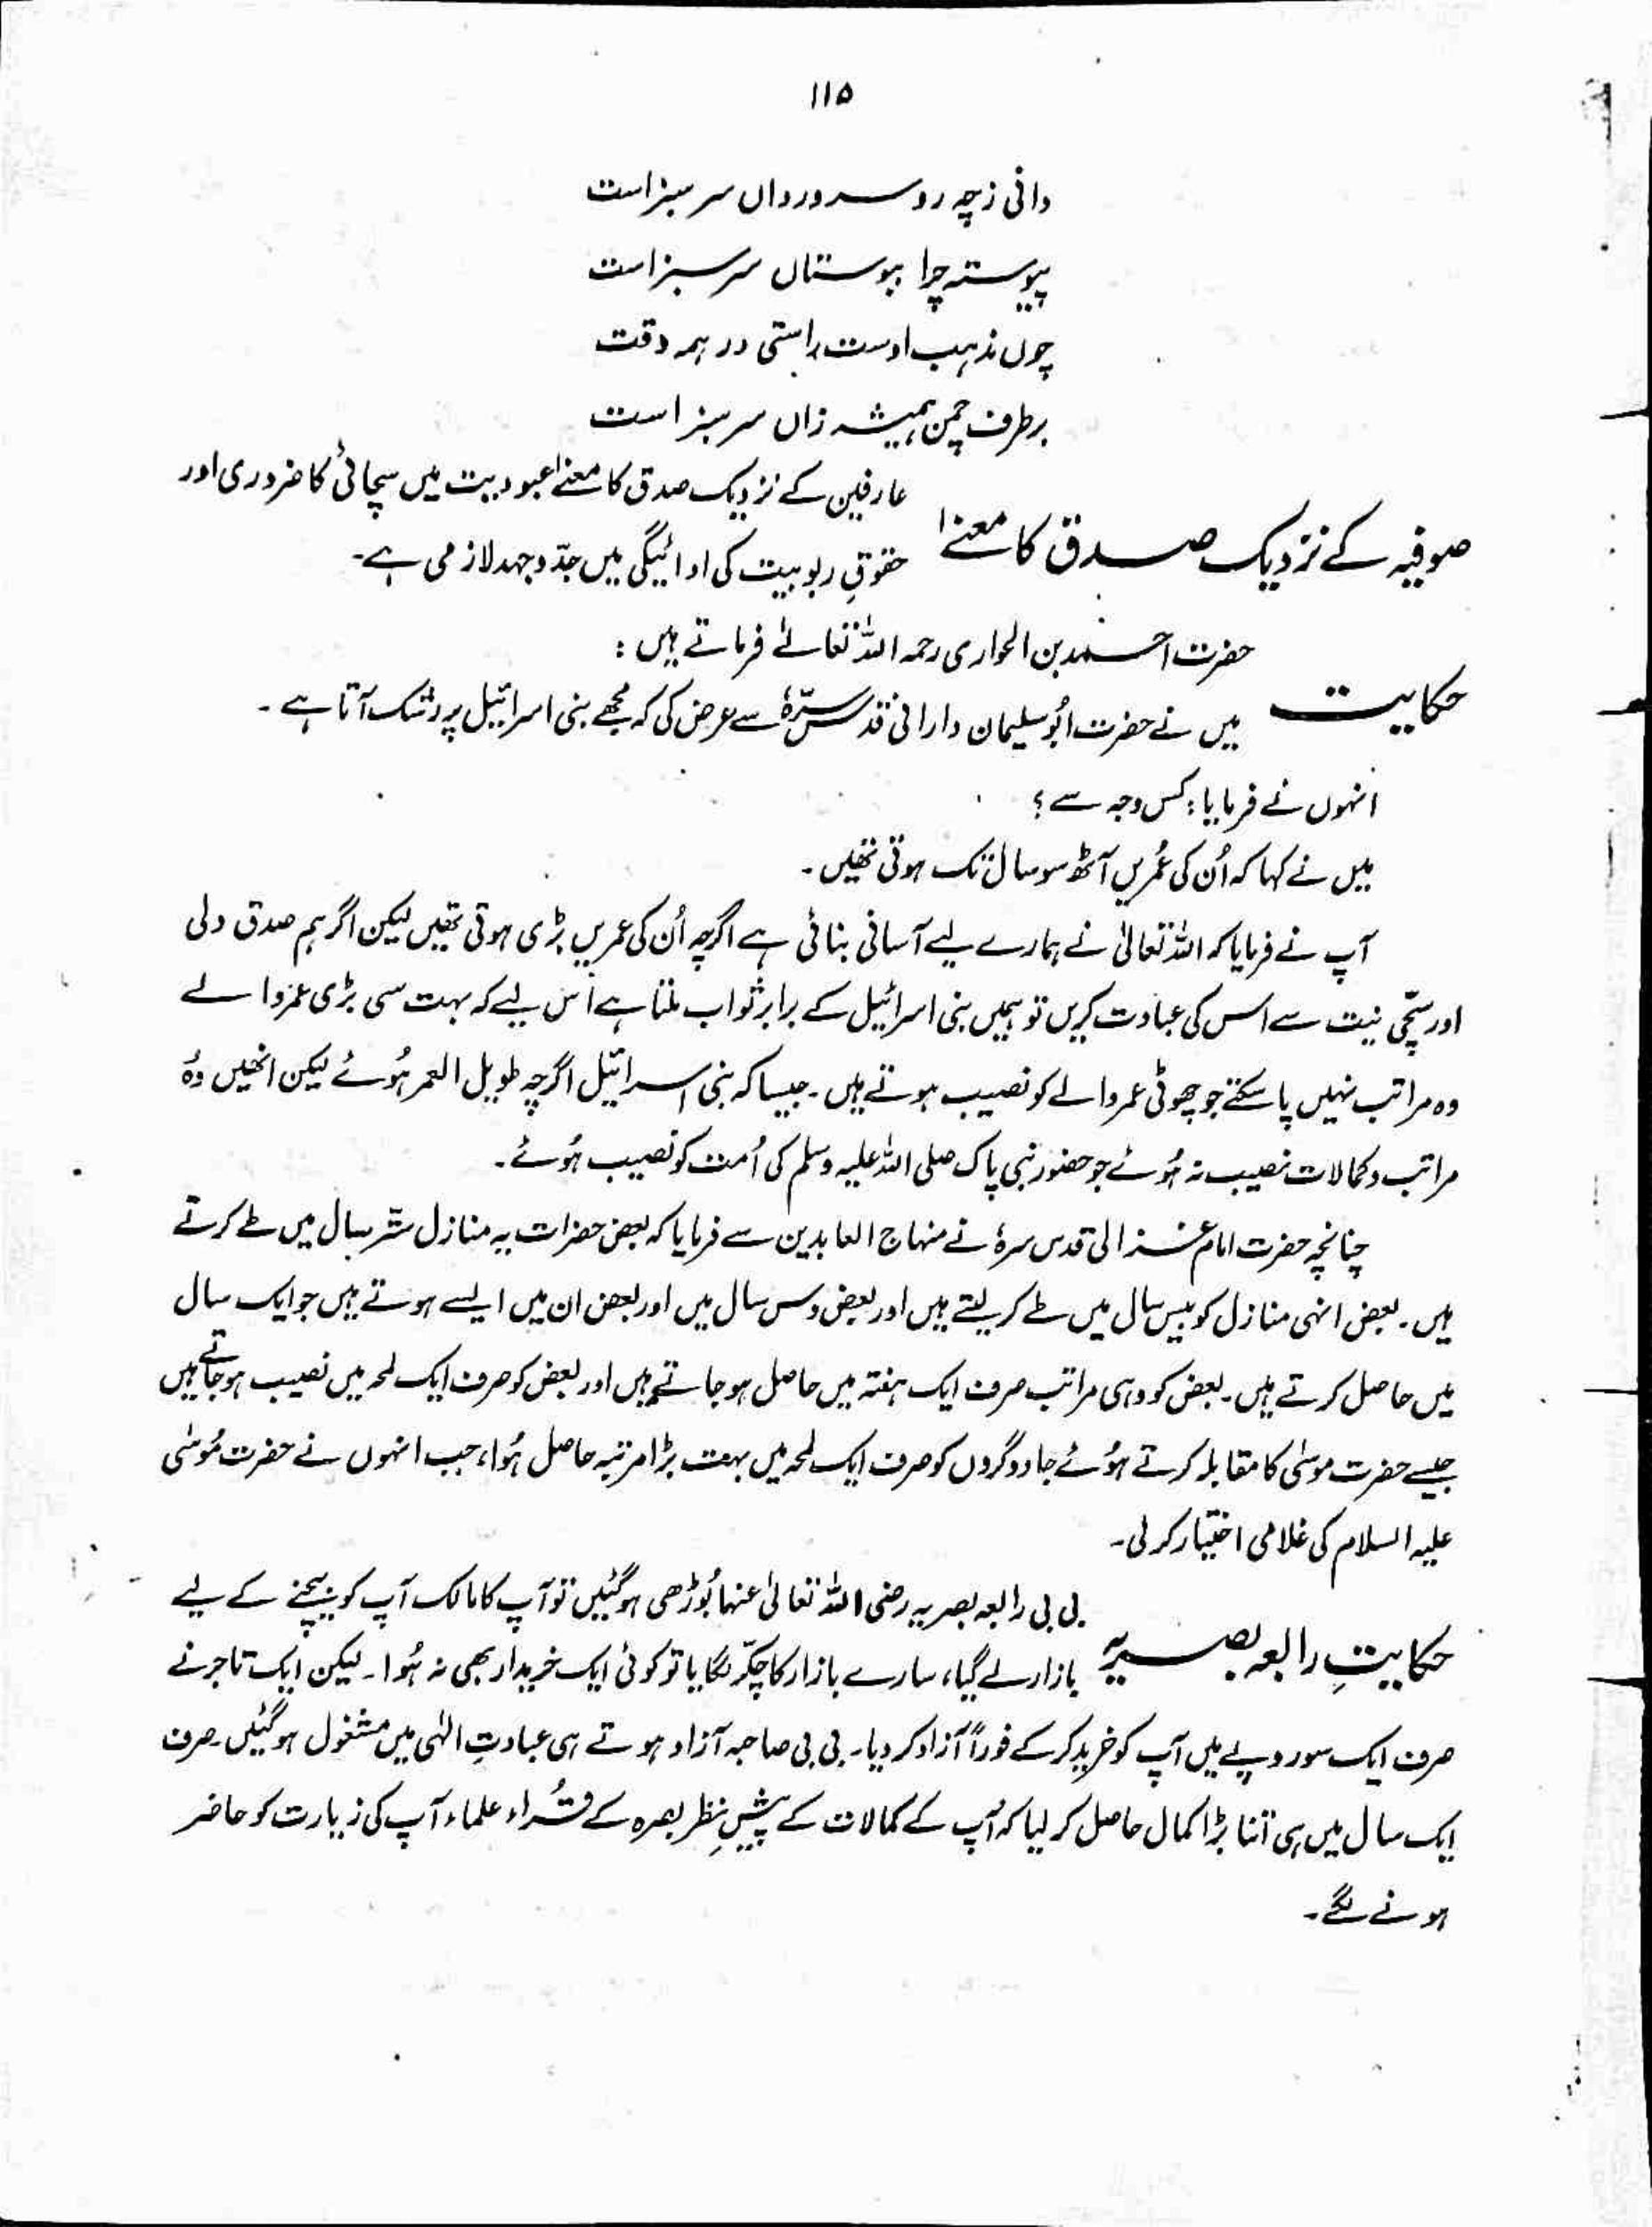 ۱۱۵
دانی ز چہ رو سرو رواں سر سبز است
پیوستہ چرا ببوستاں سر سبز است
چوں مذہب اوست راستی در ہمہ وقت
برطرف چمن ہمیشہ زاں سر سبز است
صوفیہ کے نزدیک صدق کا معنےٰ
عارفین کے نزدیک صدق کا معنےٰ عبودیت میں سچائی کا ضروری اور
حقوقِ ربوبیت کی ادائیگی میں جدّ و جہد لازمی ہے۔
حکایت
حضرت احمد بن الحواری رحمہ اللہ تعالےٰ فرماتے ہیں :
میں نے حضرت ابُو سلیمان دارانی قدس سرّہٗ سے عرض کی کہ مجھے بنی اسرائیل پر رشک آتا ہے ۔
انہوں نے فرمایا : کس وجہ سے ؟
میں نے کہا کہ اُن کی عُمریں آٹھ سو سال تک ہوتی تھیں ۔
آپ نے فرمایا کہ اللہ تعالیٰ نے ہمارے لیے آسانی بنائی ہے اگرچہ اُن کی عمریں بڑی ہوتی تھیں لیکن اگر ہم صدق دلی
اور سچّی نیت سے اس کی عبادت کریں تو ہمیں بنی اسرائیل کے برابر ثواب ملتا ہے اس لیے کہ بہت سی بڑی عمر والے
وہ مراتب نہیں پا سکتے جو چھوٹی عمر والے کو نصیب ہوتے ہیں ۔ جیسا کہ بنی اسرائیل اگرچہ طویل العمر ہُوئے لیکن انھیں وُہ
مراتب و کمالات نصیب نہ ہُوئے جو حضور نبی پاک صلی اللہ علیہ وسلم کی اُمت کو نصیب ہُوئے ۔
چنانچہ حضرت امام غزالی قدس سرہٗ نے منہاج العابدین سے فرمایا کہ بعض حضرات یہ منازل ستّر سال میں طے کرتے
ہیں ۔ بعض انہی منازل کو بیس سال میں طے کر لیتے ہیں اور بعض دس سال میں اور بعض ان میں ایسے ہوتے ہیں جو ایک سال
میں حاصل کرتے ہیں ۔ بعض کو وہی مراتب صرف ایک ہفتہ میں حاصل ہو جاتے ہیں اور بعض کو صرف ایک لمحہ میں نصیب ہو جاتے ہیں
جیسے حضرت موسیٰ کا مقابلہ کرتے ہُوئے جادوگروں کو صرف ایک لمحہ میں بہت بڑا مرتبہ حاصل ہُوا، جب انہوں نے حضرت مُوسیٰ
علیہ السلام کی غلامی اختیار کر لی ۔
حکایتِ رابعہ بصریہ
بی بی رابعہ بصریہ رضی اللہ تعالیٰ عنہا بُوڑھی ہو گئیں تو آپ کا مالک آپ کو بیچنے کے لیے
بازار لے گیا، سارے بازار کا چکّر لگایا تو کوئی ایک خریدار بھی نہ ہُوا ۔ لیکن ایک تاجر نے
صرف ایک سو روپے میں آپ کو خرید کر کے فوراً آزاد کر دیا ۔ بی بی صاحبہ آزاد ہوتے ہی عبادتِ الٰہی میں مشغول ہو گئیں ۔ صرف
ایک سال میں ہی اتنا بڑا کمال حاصل کر لیا کہ آپ کے کمالات کے پیشِ نظر بصرہ کے قُراء علماء آپ کی زیارت کو حاضر
ہونے لگے ۔